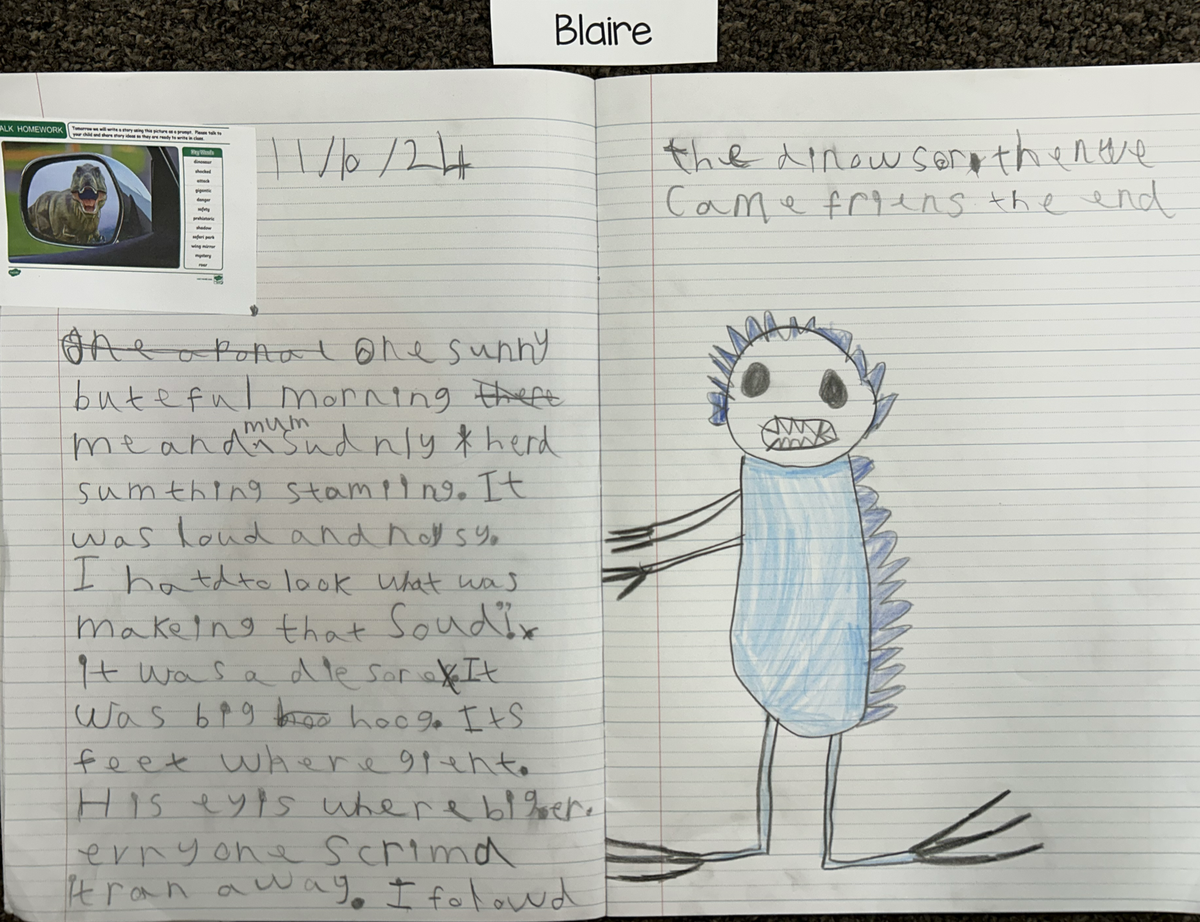 Blaire
ALK HOMEWORK
Tomorrow we will write a story using this picture as a prompt. Please talk to
your child and share story ideas so they are ready to write in class.
Key Words
dinosaur
shocked
attack
gigantic
danger
safety
prehistoric
shadow
safari park
wing mirror
mystery
roar
11/6/24
One a ponal One sunny
buteful morning there
me and mum Sudnly herd
sumthing stamping. It
was loud and noysy.
I hatd to look what was
makeing that Soud!
it was a die sore It
was big hoo hoog. Its
feet where gient.
His eyis where bigger.
erryone Scrimd
It ran away. I folowd
the dinowsor then we
Came friens the end